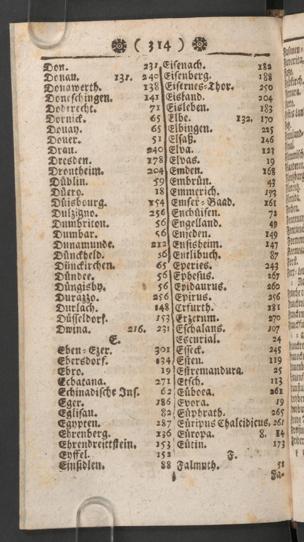 ( 314 )
Don. 231
Donau. 131. 240
Donawerth. 138
Doneschingen. 141
Dordrecht. 71
Dornick. 65
Douay. 65
Dover. 51
Drau. 240
Dresden. 178
Drontheim. 204
Düblin. 59
Düero. 18
Düisbourg. 154
Dulzigno. 256
Dumbriton. 56
Dumbar. 56
Dunamunde. 212
Dünckheld. 56
Dünckirchen. 65
Dündee. 56
Düngisby. 56
Durazzo. 256
Durlach. 148
Düsseldorf. 153
Dwina. 216. 231
E.
Eben-Ezer. 301
Ebersdorf. 134
Ebro. 19
Ecbatana. 271
Echinadische Ins. 62
Eger. 186
Eglisau. 82
Egypten. 287
Ehrenberg. 136
Ehrenbreitstein. 153
Eyffel. 152
Einsidlen. 88
Eisenach. 182
Eisenberg. 188
Eisernes-Thor. 250
Eisland. 204
Eisleben. 183
Elbe. 132. 170
Elbingen. 225
Elsaß. 146
Elva. 121
Elvas. 19
Emden. 168
Embrün. 43
Emmerich. 193
Emser-Baad. 161
Enchüisen. 71
Engelland. 49
Enjeden. 149
Ensisheim. 147
Entlibuch. 87
Eperies. 243
Ephesus. 267
Epidaurus. 260
Epirus. 256
Erfurth. 181
Erzerum. 270
Eschalans. 107
Escurial. 24
Esseck. 245
Essen. 119
Estremandura. 25
Etsch. 113
Eüboea. 261
Evora. 19
Eüphrath. 265
Eüripus Chalcidicus. 261
Eüropa. 8. 14
Eütin. 173
F.
Falmuth. 51
Fa-